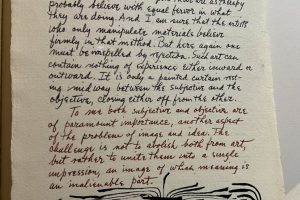 probably believe with equal fervor in what
they are doing. And I am sure that the artists
who only manipulate materials believe
firmly in that method. But here again one
must be compelled by rejection. Such art can
contain nothing of experience either inward or
outward. It is only a painted curtain rest-
ing midway between the subjective and the
objective, closing either off from the other.
To me both subjective and objective are
of paramount importance, another aspect
of the problem of image and idea. The
challenge is not to abolish both from art,
but rather to unite them into a single
impression, an image of which meaning is
an inalienable part.